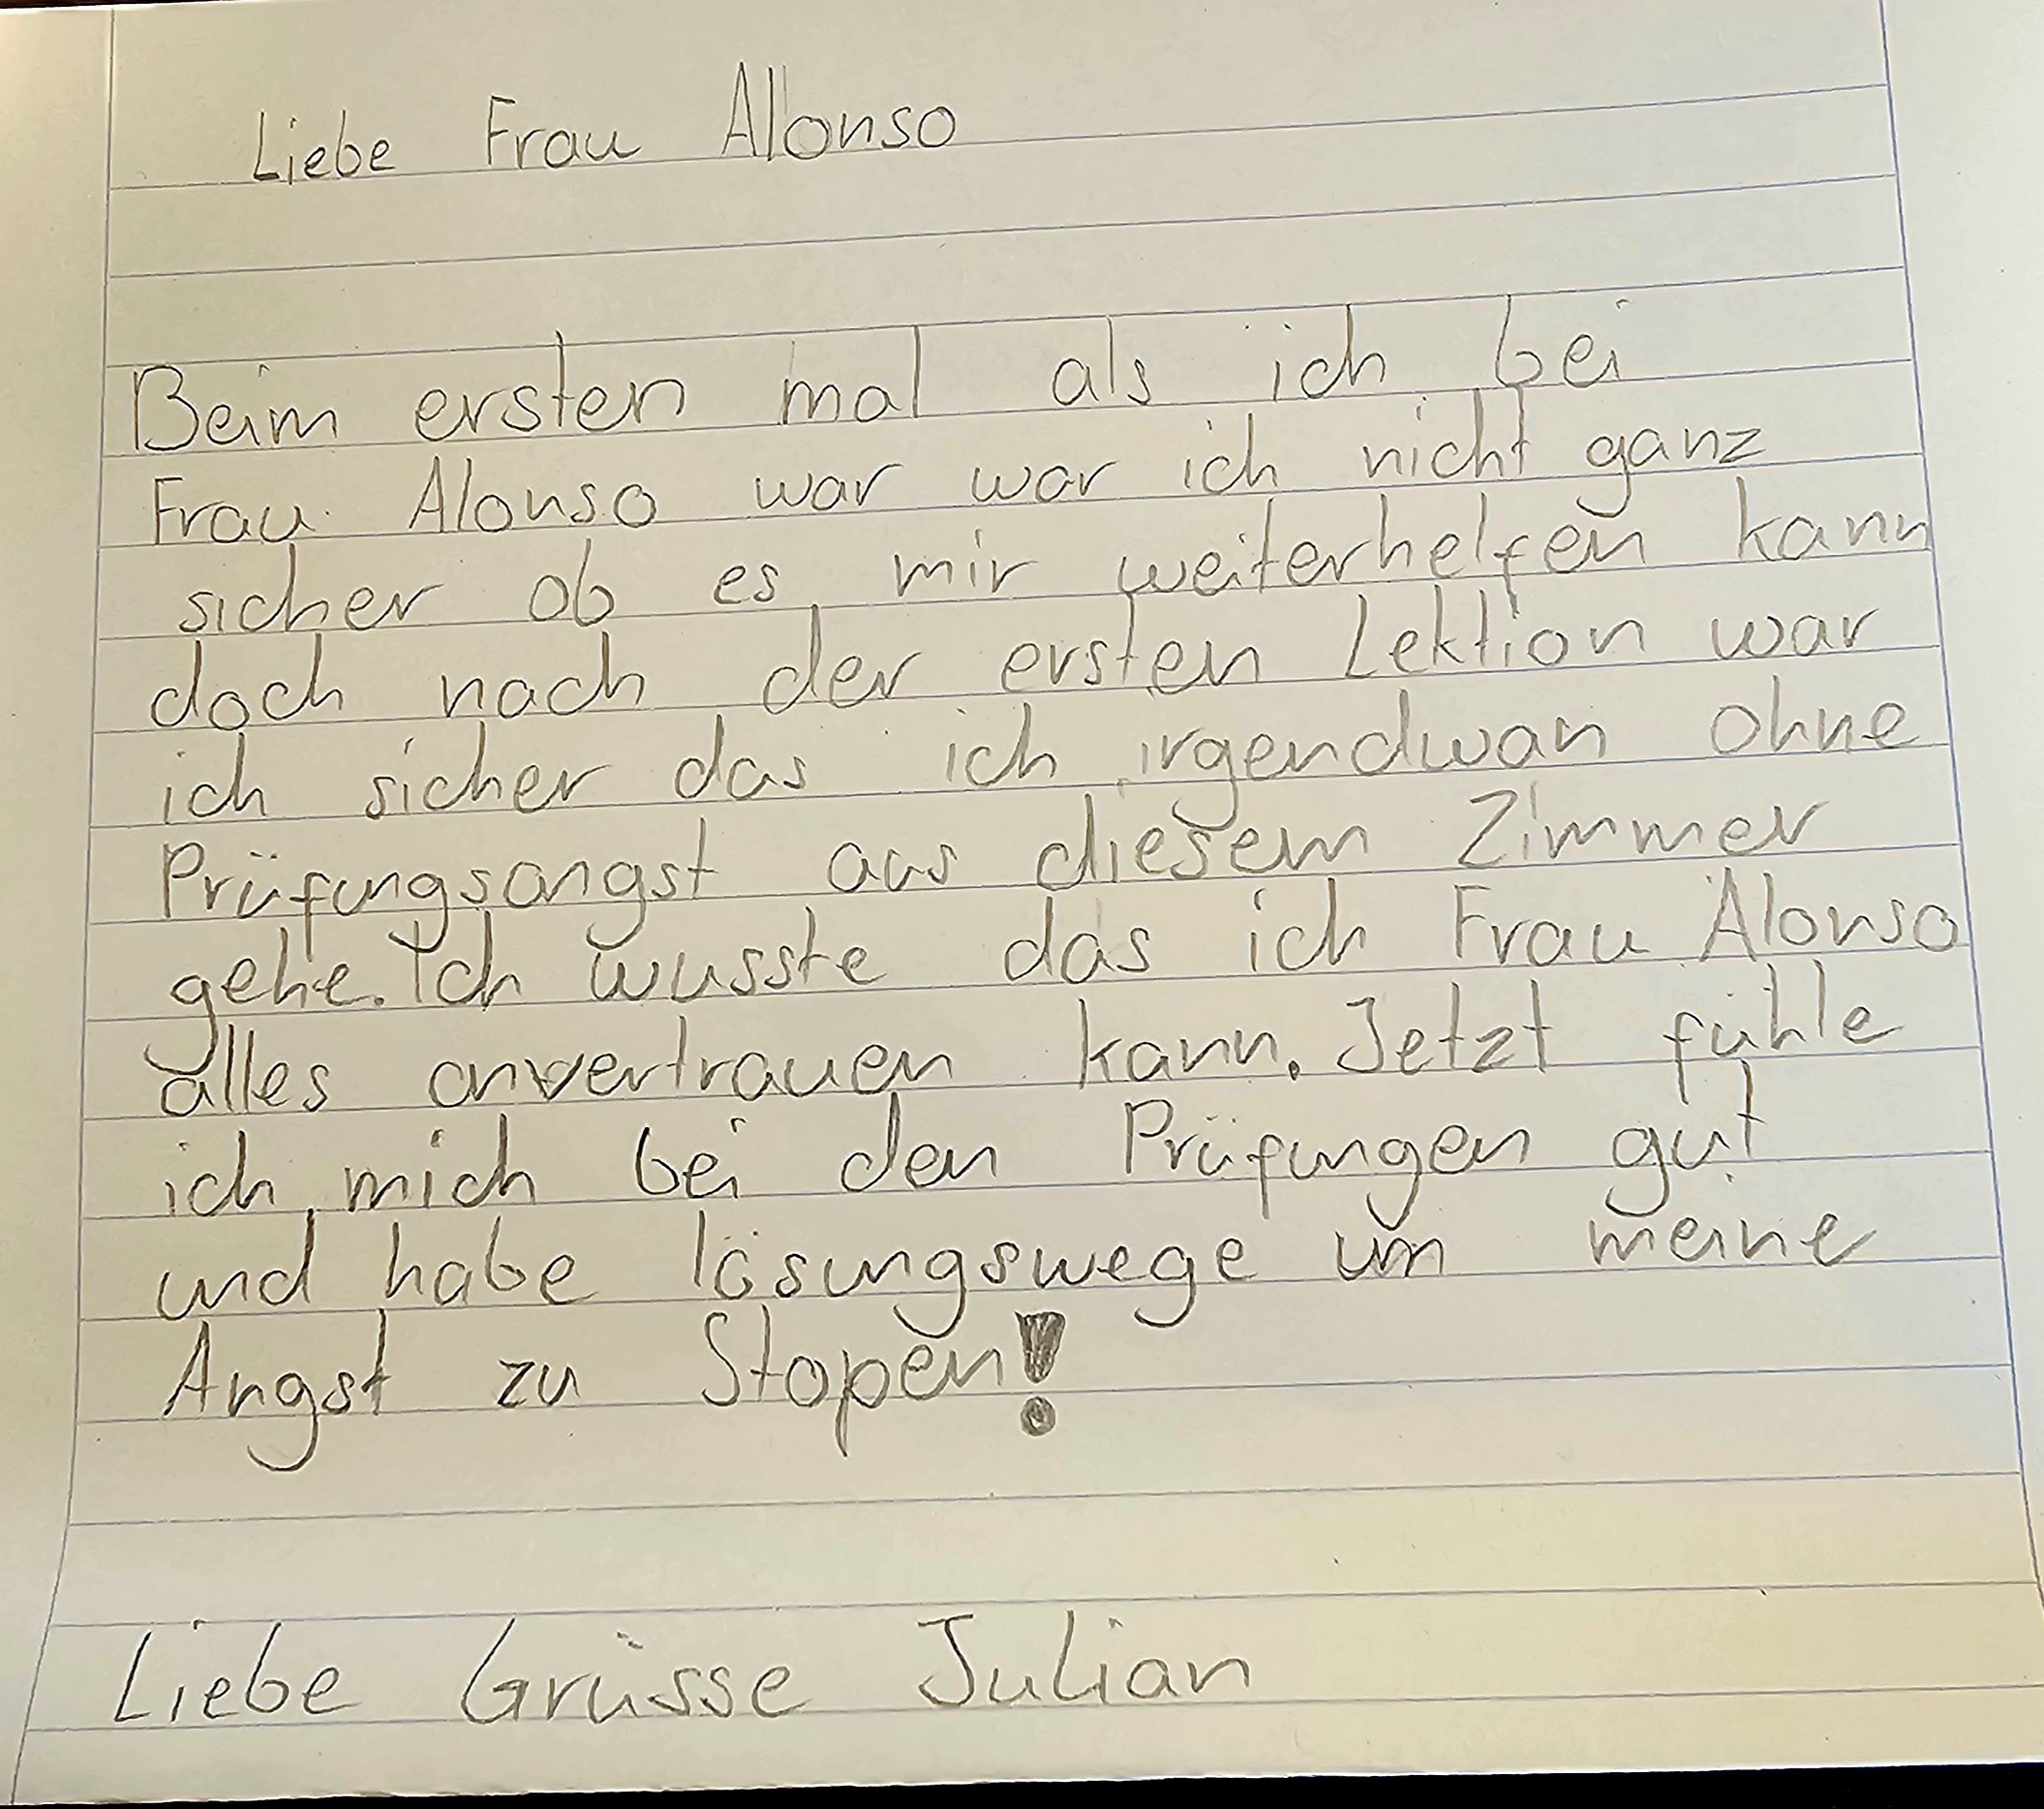 Liebe Frau Alonso
Beim ersten mal als ich bei
Frau Alonso war war ich nicht ganz
sicher ob es mir weiterhelfen kann
doch nach der ersten Lektion war
ich sicher das ich irgendwan ohne
Prüfungsangst aus diesem Zimmer
gehe. Ich wusste das ich Frau Alonso
alles anvertrauen kann. Jetzt fühle
ich mich bei den Prüfungen gut
und habe lösungswege um meine
Angst zu Stopen!
Liebe Grüsse Julian